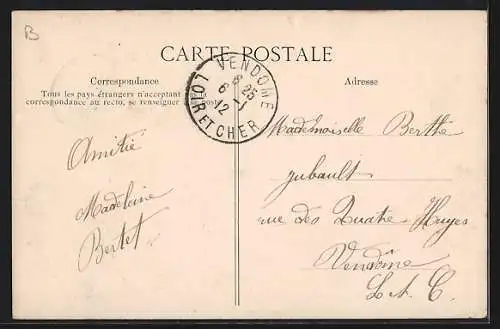 B
CARTE POSTALE
Correspondance
Tous les pays étrangers n'acceptant pas la
correspondance au recto, se renseigner à la poste
Adresse
VENDOME
8 25
6 - 1
12
LOIR ET CHER
Amitié
Madeleine
Bertet
Mademoiselle Berthe
Jubault
rue des Quatre-Huyes
Vendôme
L. et C.